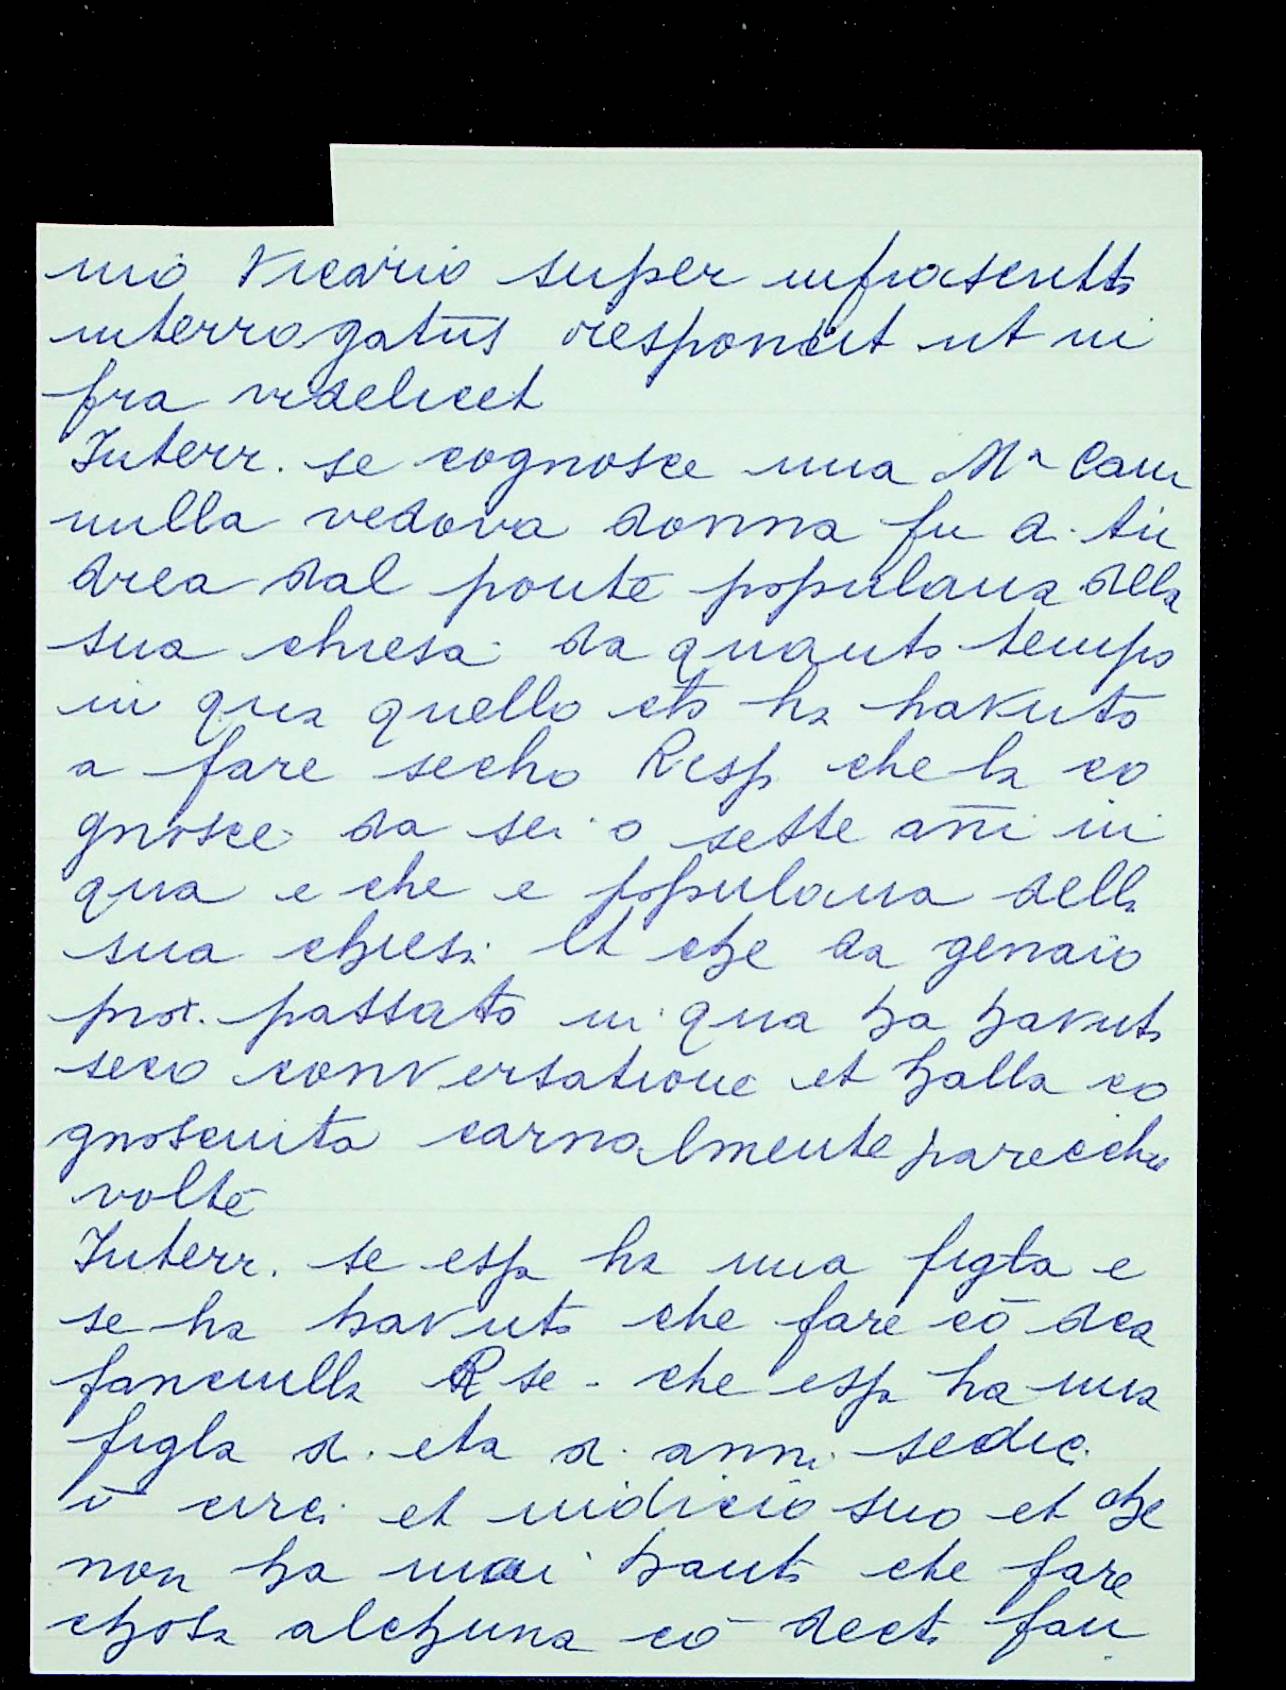 mio Vicario super infrascritto
interrogatus respondit ut in
fra videlicet
Interr. se cognosce una Ma Cam
milla vedova donna fu d. An
drea dal ponte populana della
sua chiesa da quanto tempo
in qua quello eto ha havuto
a fare secho Resp che la co
gnosce da sei o sette anni in
qua e che e populana della
sua chiesa et che da genaio
prox. passato in qua ha havuto
seco conversatione et halla co
gnosciuta carnalmente parecchie
volte
Interr. se essa ha una figla e
se ha havuto che fare cō dca
fanciulla R se - che essa ha una
figla d. eta d. anni sedic.
ī circa et iudicio suo et che
non ha mai hauto che fare
chosa alchuna cō decta fan